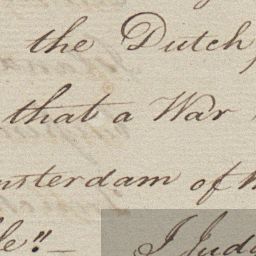 the Dutch,
that a War
nsterdam of
le".—
I Jud